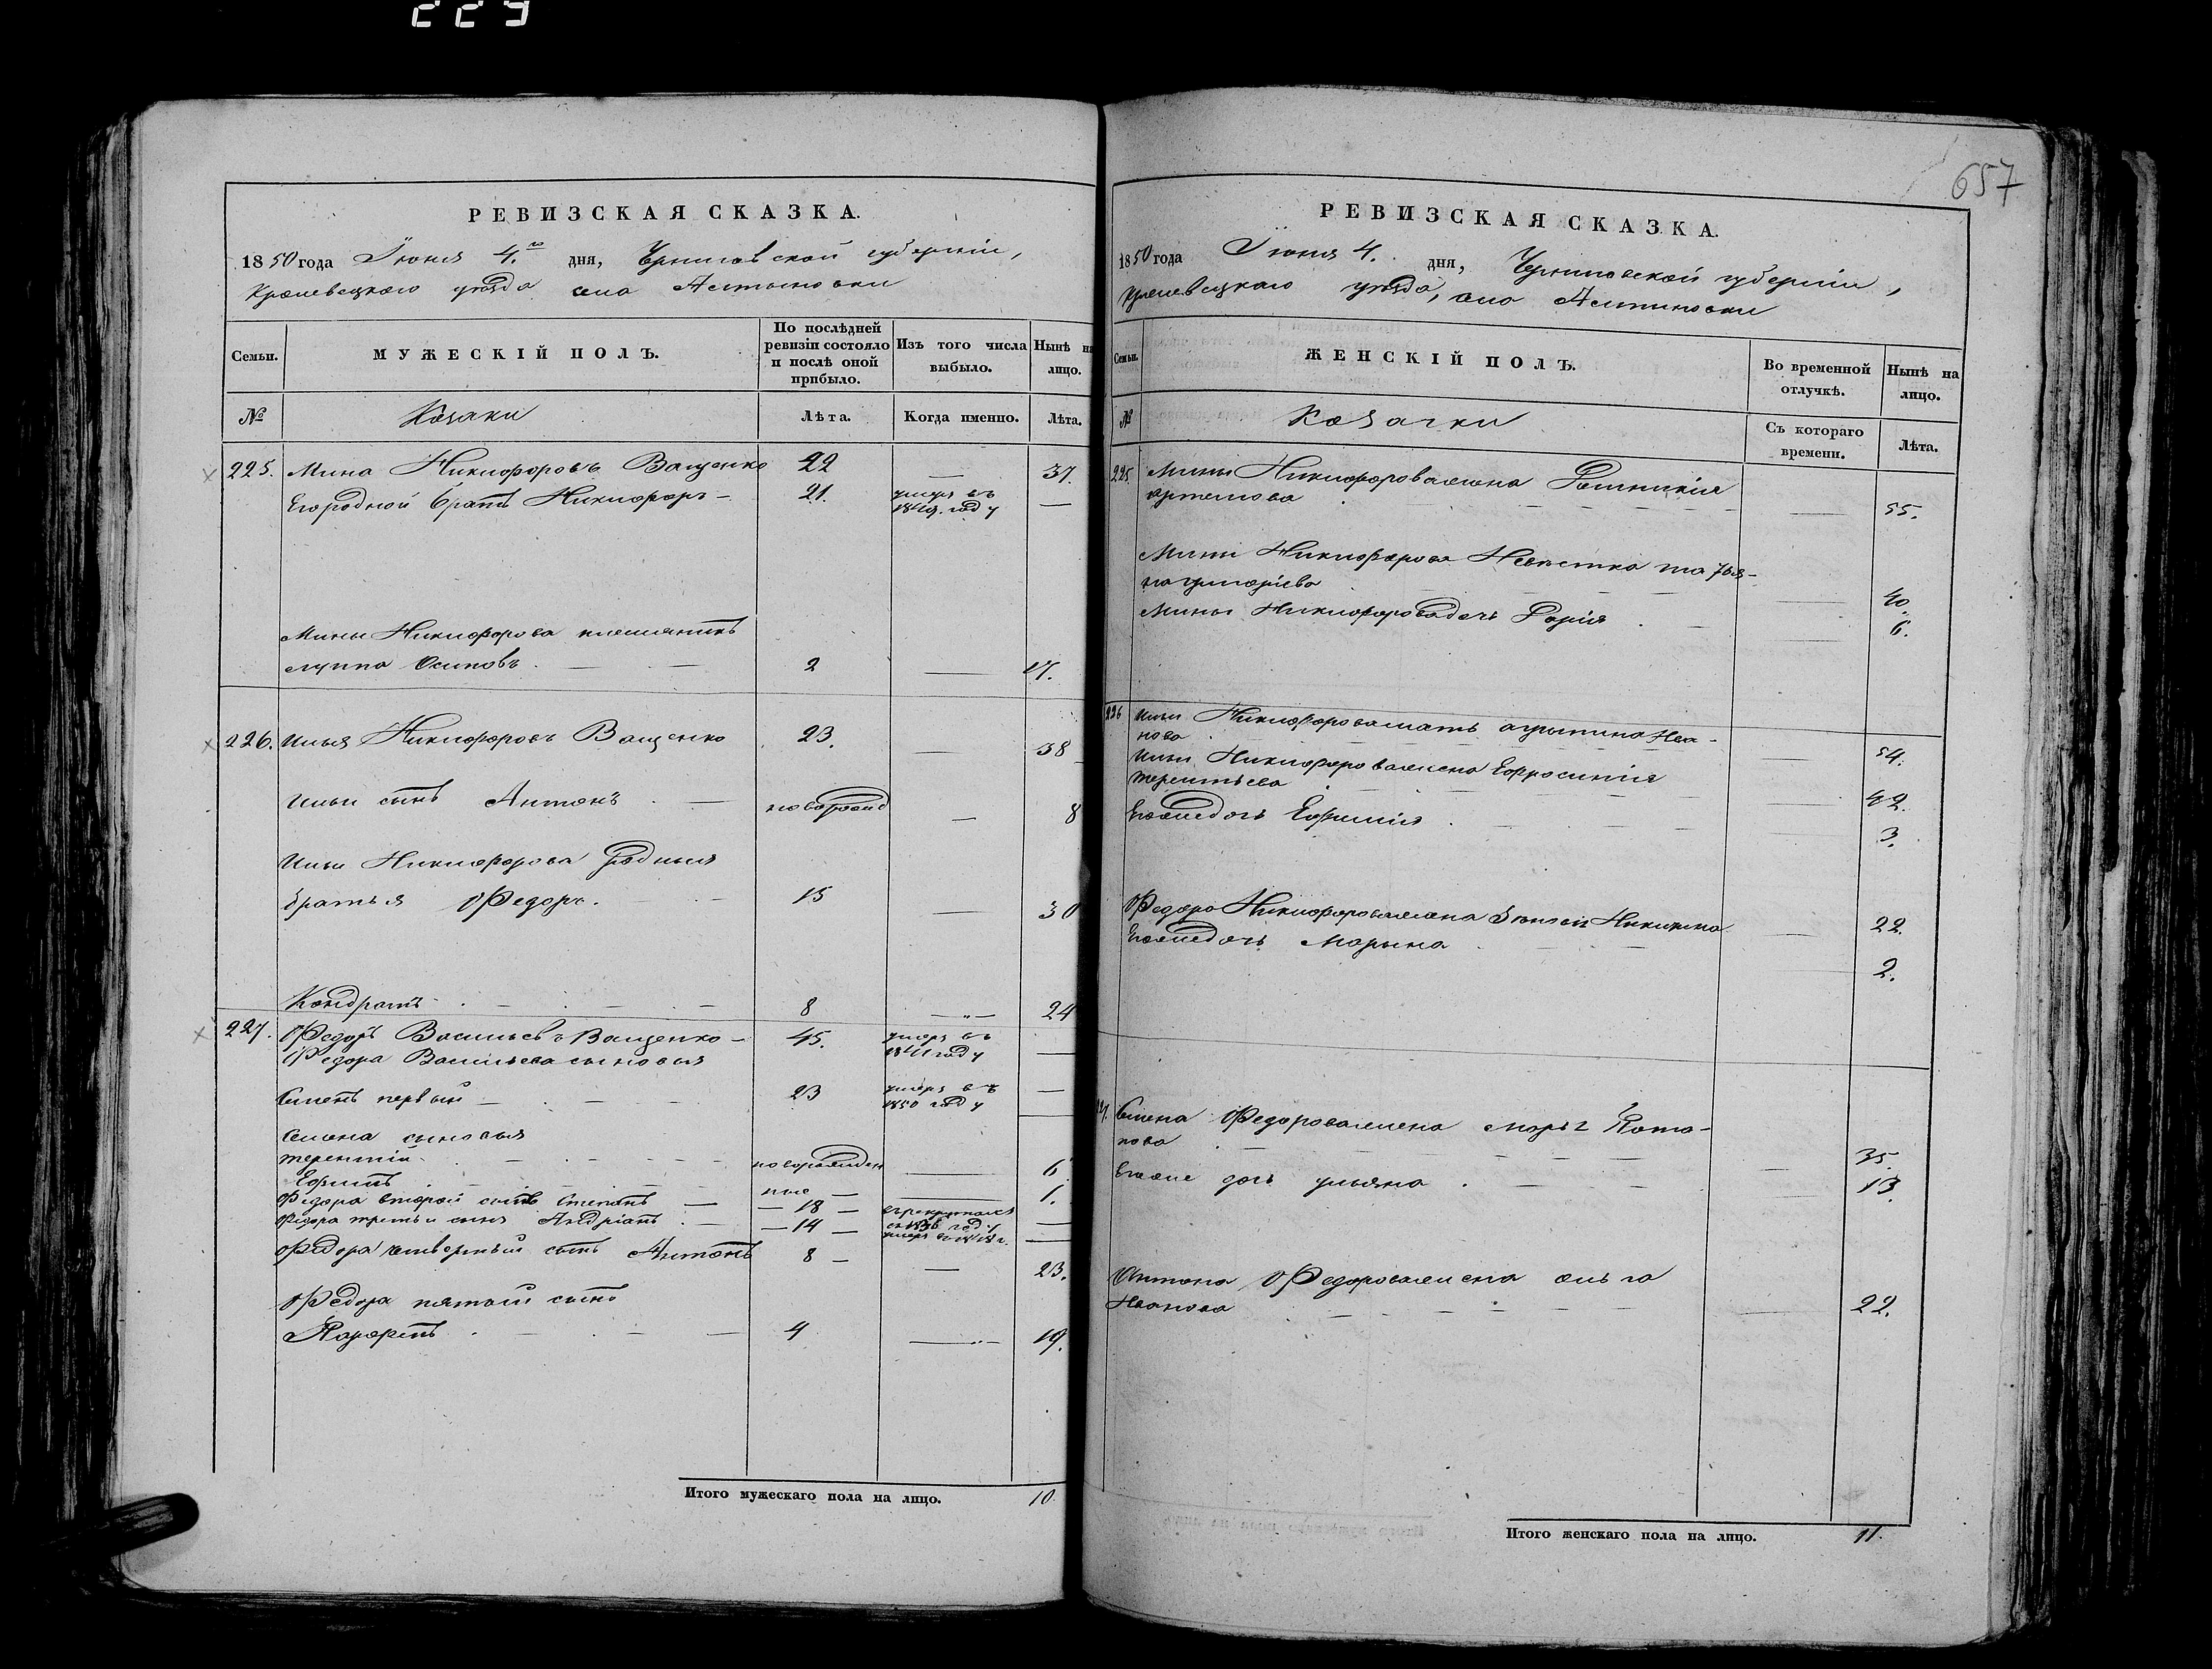 229
РЕВИЗСКАЯ СКАЗКА.
1850 года Іюня 4.го дня, Черниговской губерніи,
Кролевецкаго уѣзда села Алтыновки
Семьи. МУЖЕСКІЙ ПОЛЪ. По послѣдней ревизіи состояло и послѣ оной прибыло. Изъ того числа выбыло. Нынѣ на лицо.
№ Козаки Лѣта. Когда именно. Лѣта.
225. Мина Никифоровъ Ващенко 22 — 37.
Егородной братъ Никифоръ — 21. умеръ въ 1849. году —
Мины Никифорова племянникъ
Луппа Осиповъ . — — 2 — 17.
226. Илья Никифоровъ Ващенко 23. — 38
Ильи сынъ Антонъ . — новорожд — 8
Ильи Никифорова родныя
братья Федоръ. — 15 — 30
Кондратъ . — . — . — 8 — 24
227. Федоръ Васильевъ Ващенко — 45. умеръ въ году —
Федора Васильева сыновья
Семенъ первый — . — — 23 умеръ въ 1850 году —
Семена сыновья
Терентій . — . — — новорожден — 6
Ефимъ . — — ные — — 1.
Федора второй сынъ Степанъ — — 18 —
Федора третьи сынъ Андріанъ . — — 14 — умеръ —
Федора четвертый сынъ Антонъ 8 — — 23.
Федора пятый сынъ
. — . — — 4 — 19.
Итого мужескаго пола на лицо. 10.
657
РЕВИЗСКАЯ СКАЗКА.
1850 года Іюня 4. дня, Черниговской губерніи,
Кролевецкаго уѣзда, села Алтиновки
Семьи. ЖЕНСКІЙ ПОЛЪ. Во временной отлучкѣ. Нынѣ на лицо.
№ Козачки Съ котораго времени. Лѣта.
225. Мины Никифорова жена
Артемова — 55.
Мины Никифорова Невѣстка Татья-
на Григоріева — 40.
Мины Никифорова дочь Дарія . — — 6.
226 Ильи Никифорова мать Агрипина Ива-
нова — 54.
Ильи Никифорова жена Ефросинія
Терентьева — 42.
Егоже дочь Ефимія . — — 3.
Федора Никифорова жена Никитина — 22.
Егоже дочь Марына . — — 2.
227. Семена Федорова жена Пота-
пова — 35.
Егоже дочь Ульяна . — — 13.
Антона Федорова жена Ольга
Иванова — — — 22.
Итого женскаго пола на лицо. 11.